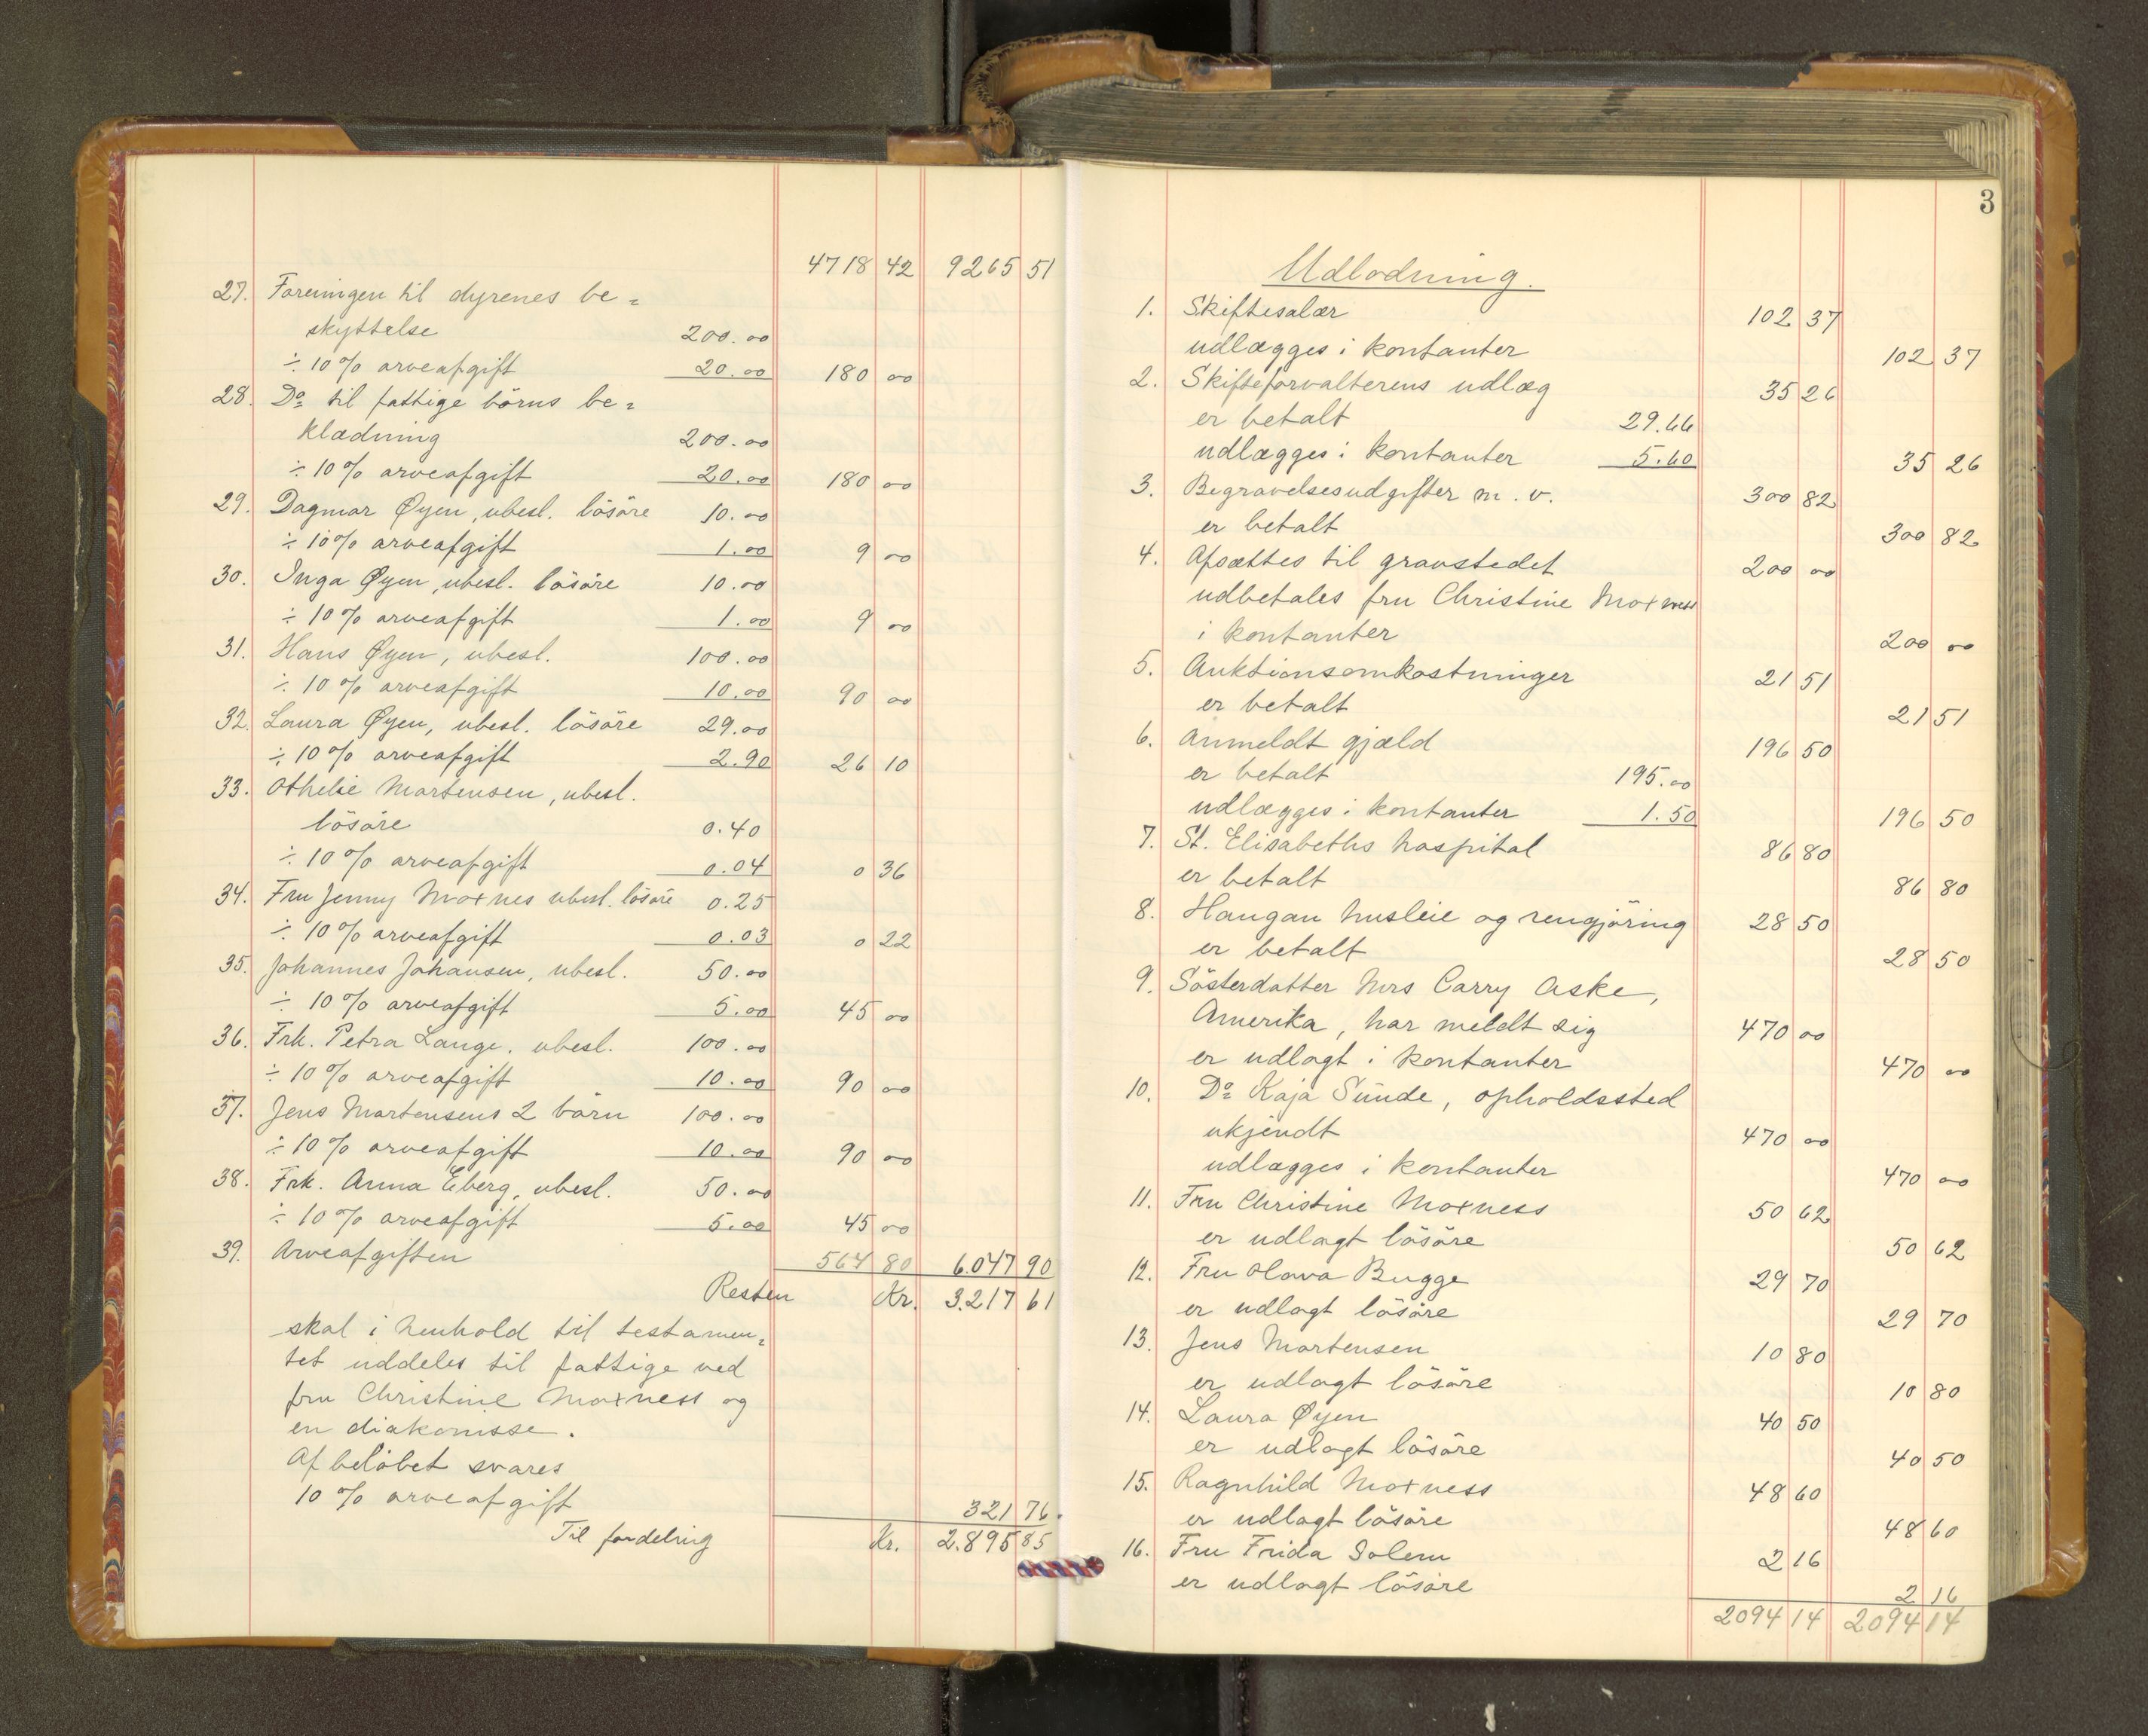 4718 42 9265 51
27. Foreningen til dyrenes be=
skyttelse 200.00
÷ 10% arveafgift 20.00 180 00
28. Do til fattige börns be=
klædning 200.00
÷ 10% arveafgift 20.00 180 00
29. Dagmar Øyen, ubesl. lösöre 10.00
÷ 10% arveafgift 1.00 9 00
30. Inga Øyen, ubesl. lösöre 10.00
÷ 10% arveafgift 1.00 9 00
31. Hans Øyen, ubesl. 100.00
÷ 10% arveafgift 10.00 90 00
32. Laura Øyen, ubesl. lösöre 29.00
÷ 10% arveafgift 2.90 26 10
33. Othelie Martensen, ubesl.
lösöre 0.40
÷ 10% arveafgift 0.04 0 36
34. Fru Jenny Moxnes ubesl. lösöre 0.25
÷ 10% arveafgift 0.03 0 22
35. Johannes Johansen, ubesl. 50.00
÷ 10% arveafgift 5.00 45 00
36. Frk. Petra Lange, ubesl. 100.00
÷ 10% arveafgift 10.00 90 00
37. Jens Martensens 2 börn 100.00
÷ 10% arveafgift 10.00 90 00
38. Frk. Anna Eberg, ubesl. 50.00
÷ 10% arveafgift 5.00 45 00
39. Arveafgiften 564 80 6.047 90
Resten Kr. 3.217 61
skal i henhold til testamen=
tet uddeles til fattige ved
fru Christine Moxness og
en diakonisse.
Af belöbet svares
10% arveafgift 321 76
Til fordeling Kr. 2.895 85
3
Udlodning.
1. Skiftesalær 102 37
udlægges i kontanter 102 37
2. Skifteforvalterens udlæg 35 26
er betalt 29.66
udlægges i kontanter 5.60 35 26
3. Begravelsesudgifter m. v. 300 82
er betalt 300 82
4. Afsættes til gravstedet 200 00
udbetales fru Christine Moxness
i kontanter 200 00
5. Auktionsomkostninger 21 51
er betalt 21 51
6. Anmeldt gjæld 196 50
er betalt 195.00
udlægges i kontanter 1.50 196 50
7. St. Elisabeths hospital 86 80
er betalt 86 80
8. Haugan husleie og rengjöring 28 50
er betalt 28 50
9. Sösterdatter Mrs Carry Aske,
Amerika, har meldt sig 470 00
er udlagt i kontanter 470 00
10. Do Kaja Sunde, opholdssted
ukjendt 470 00
udlægges i kontanter 470 00
11. Fru Christine Moxness 50 62
er udlagt lösöre 50 62
12. Fru Olava Bugge 29 70
er udlagt lösöre 29 70
13. Jens Martensen 10 80
er udlagt lösöre 10 80
14. Laura Øyen 40 50
er udlagt lösöre 40 50
15. Ragnhild Moxness 48 60
er udlagt lösöre 48 60
16. Fru Frida Solem 2 16
er udlagt lösöre 2 16
2094 14 2094 14